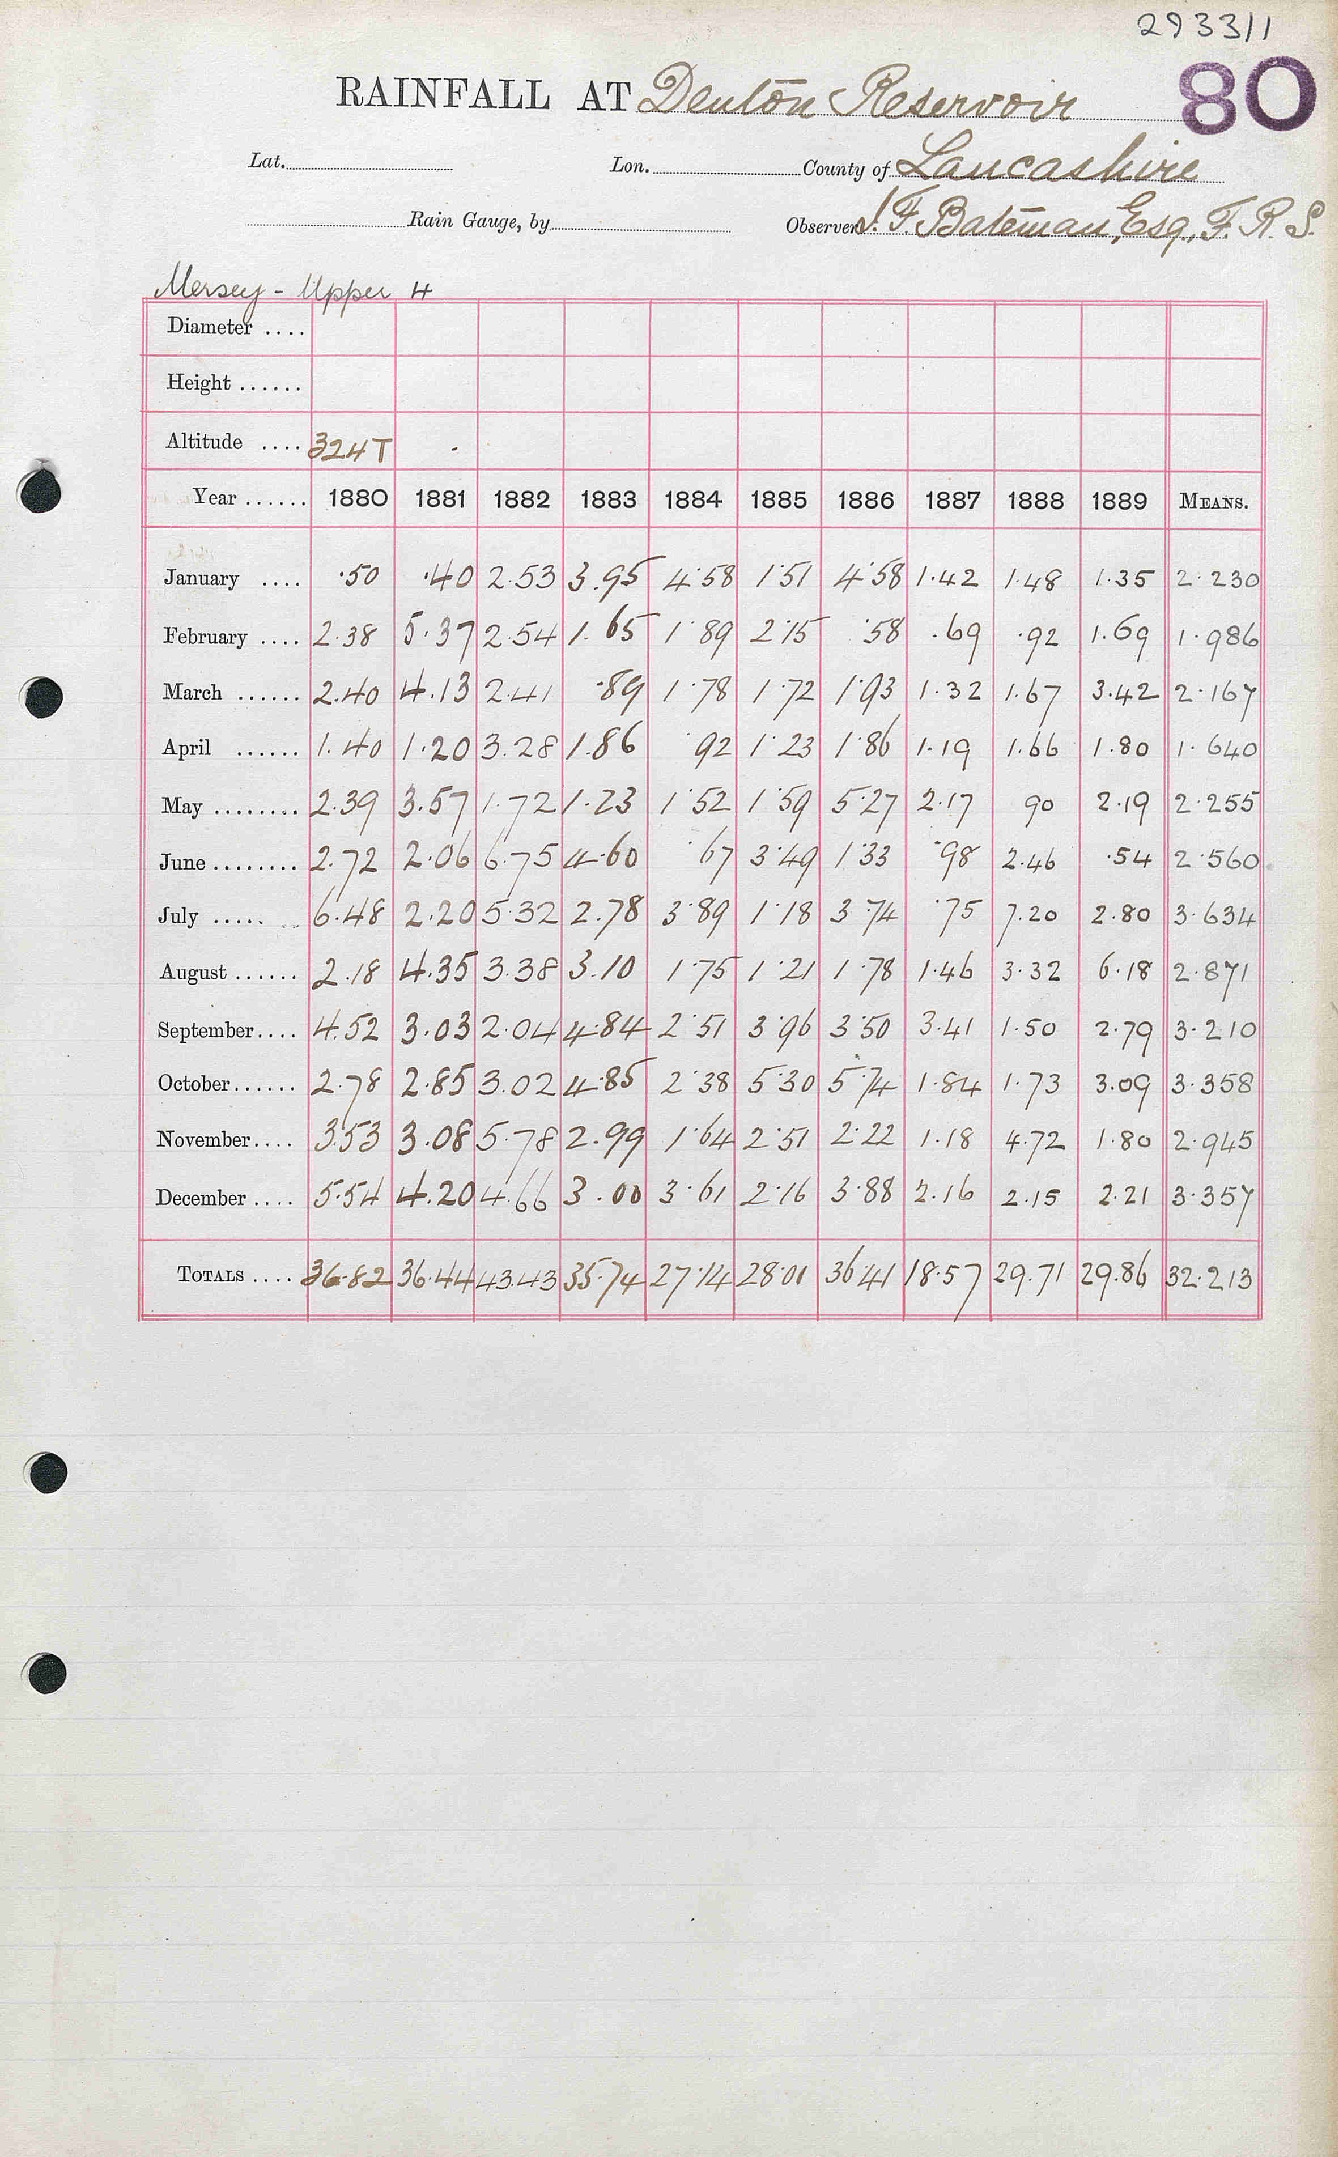 29331/1
RAINFALL AT Denton Reservoir 80
Lat. Lon. County of Lancashire
Rain Gauge, by Observer J. F. Bateman, Esq., F. R. S.
Mersey - Upper 4
Diameter ....
Height ......
Altitude .... 324T
Year ...... 1880 1881 1882 1883 1884 1885 1886 1887 1888 1889 MEANS.
January .... .50 .40 2.53 3.95 4.58 1.51 4.58 1.42 1.48 1.35 2.230
February .... 2.38 5.37 2.54 1.65 1.89 2.15 .58 .69 .92 1.69 1.986
March ...... 2.40 4.13 2.41 .89 1.78 1.72 1.93 1.32 1.67 3.42 2.167
April ...... 1.40 1.20 3.28 1.86 .92 1.23 1.86 1.19 1.66 1.80 1.640
May ........ 2.39 3.57 1.72 1.23 1.52 1.59 5.27 2.17 90 2.19 2.255
June ........ 2.72 2.06 6.75 4.60 .67 3.49 1.33 .98 2.46 .54 2.560
July ..... 6.48 2.20 5.32 2.78 3.89 1.18 3.74 .75 7.20 2.80 3.634
August ...... 2.18 4.35 3.38 3.10 1.75 1.21 1.78 1.46 3.32 6.18 2.871
September .... 4.52 3.03 2.04 4.84 2.51 3.96 3.50 3.41 1.50 2.79 3.210
October ...... 2.78 2.85 3.02 4.85 2.38 5.30 5.74 1.84 1.73 3.09 3.358
November .... 3.53 3.08 5.78 2.99 1.64 2.51 2.22 1.18 4.72 1.80 2.945
December .... 5.54 4.20 4.66 3.00 3.61 2.16 3.88 2.16 2.15 2.21 3.357
TOTALS .... 36.82 36.44 43.43 35.74 27.14 28.01 36.41 18.57 29.71 29.86 32.213